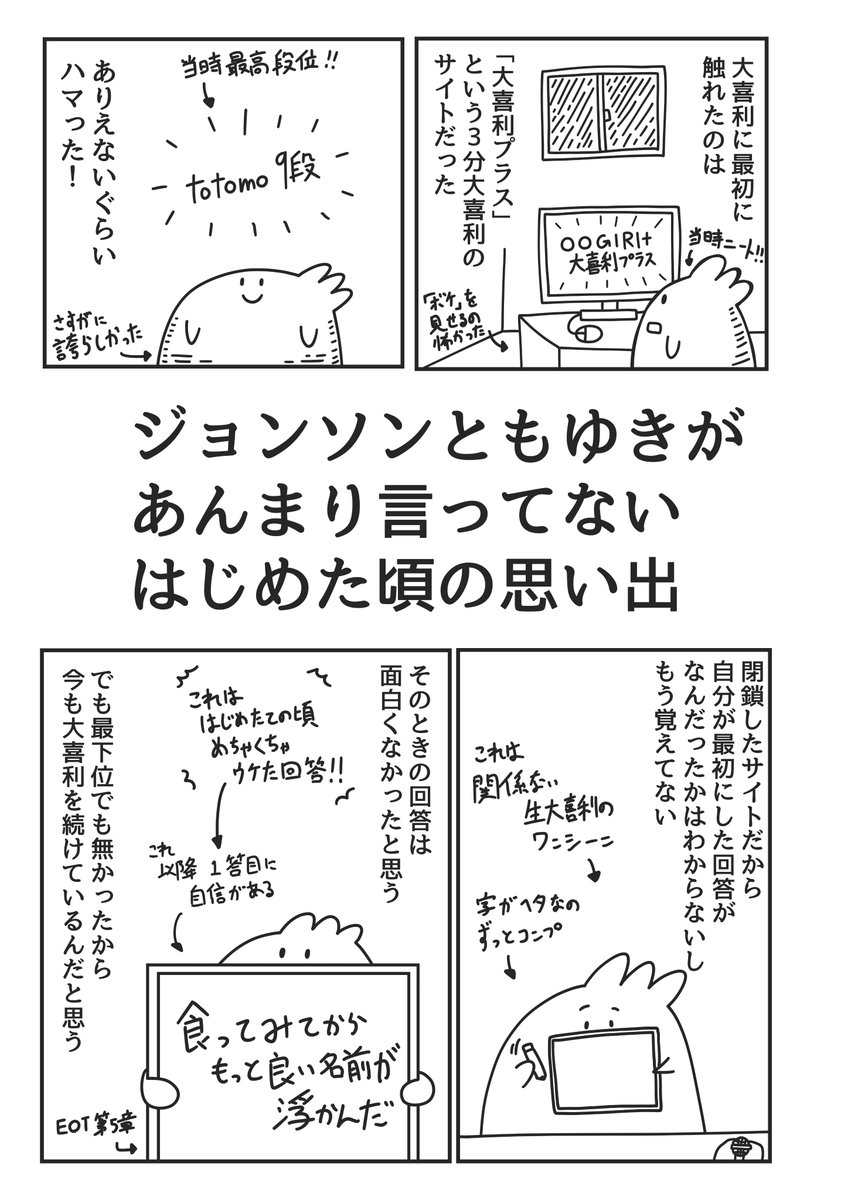 大喜利に最初に
触れたのは
OOGIRI+
大喜利プラス
当時ニート!!
「大喜利プラス」
という3分大喜利の
サイトだった
「ボケ」を
見せるの
怖かった
当時最高段位!!
totomo 9段
ありえないぐらい
ハマった！
さすがに
誇らしかった
ジョンソンともゆきが
あんまり言ってない
はじめた頃の思い出
閉鎖したサイトだから
自分が最初にした回答が
なんだったかはわからないし
もう覚えてない
これは
関係ない
生大喜利の
ワンシーン
字がヘタなの
ずっとコンプ
そのときの回答は
面白くなかったと思う
これは
はじめたての頃
めちゃくちゃ
ウケた回答!!
これ
以降 1答目に
自信がある
食ってみてから
もっと良い名前が
浮かんだ
でも最下位でも無かったから
今も大喜利を続けているんだと思う
EOT第5章